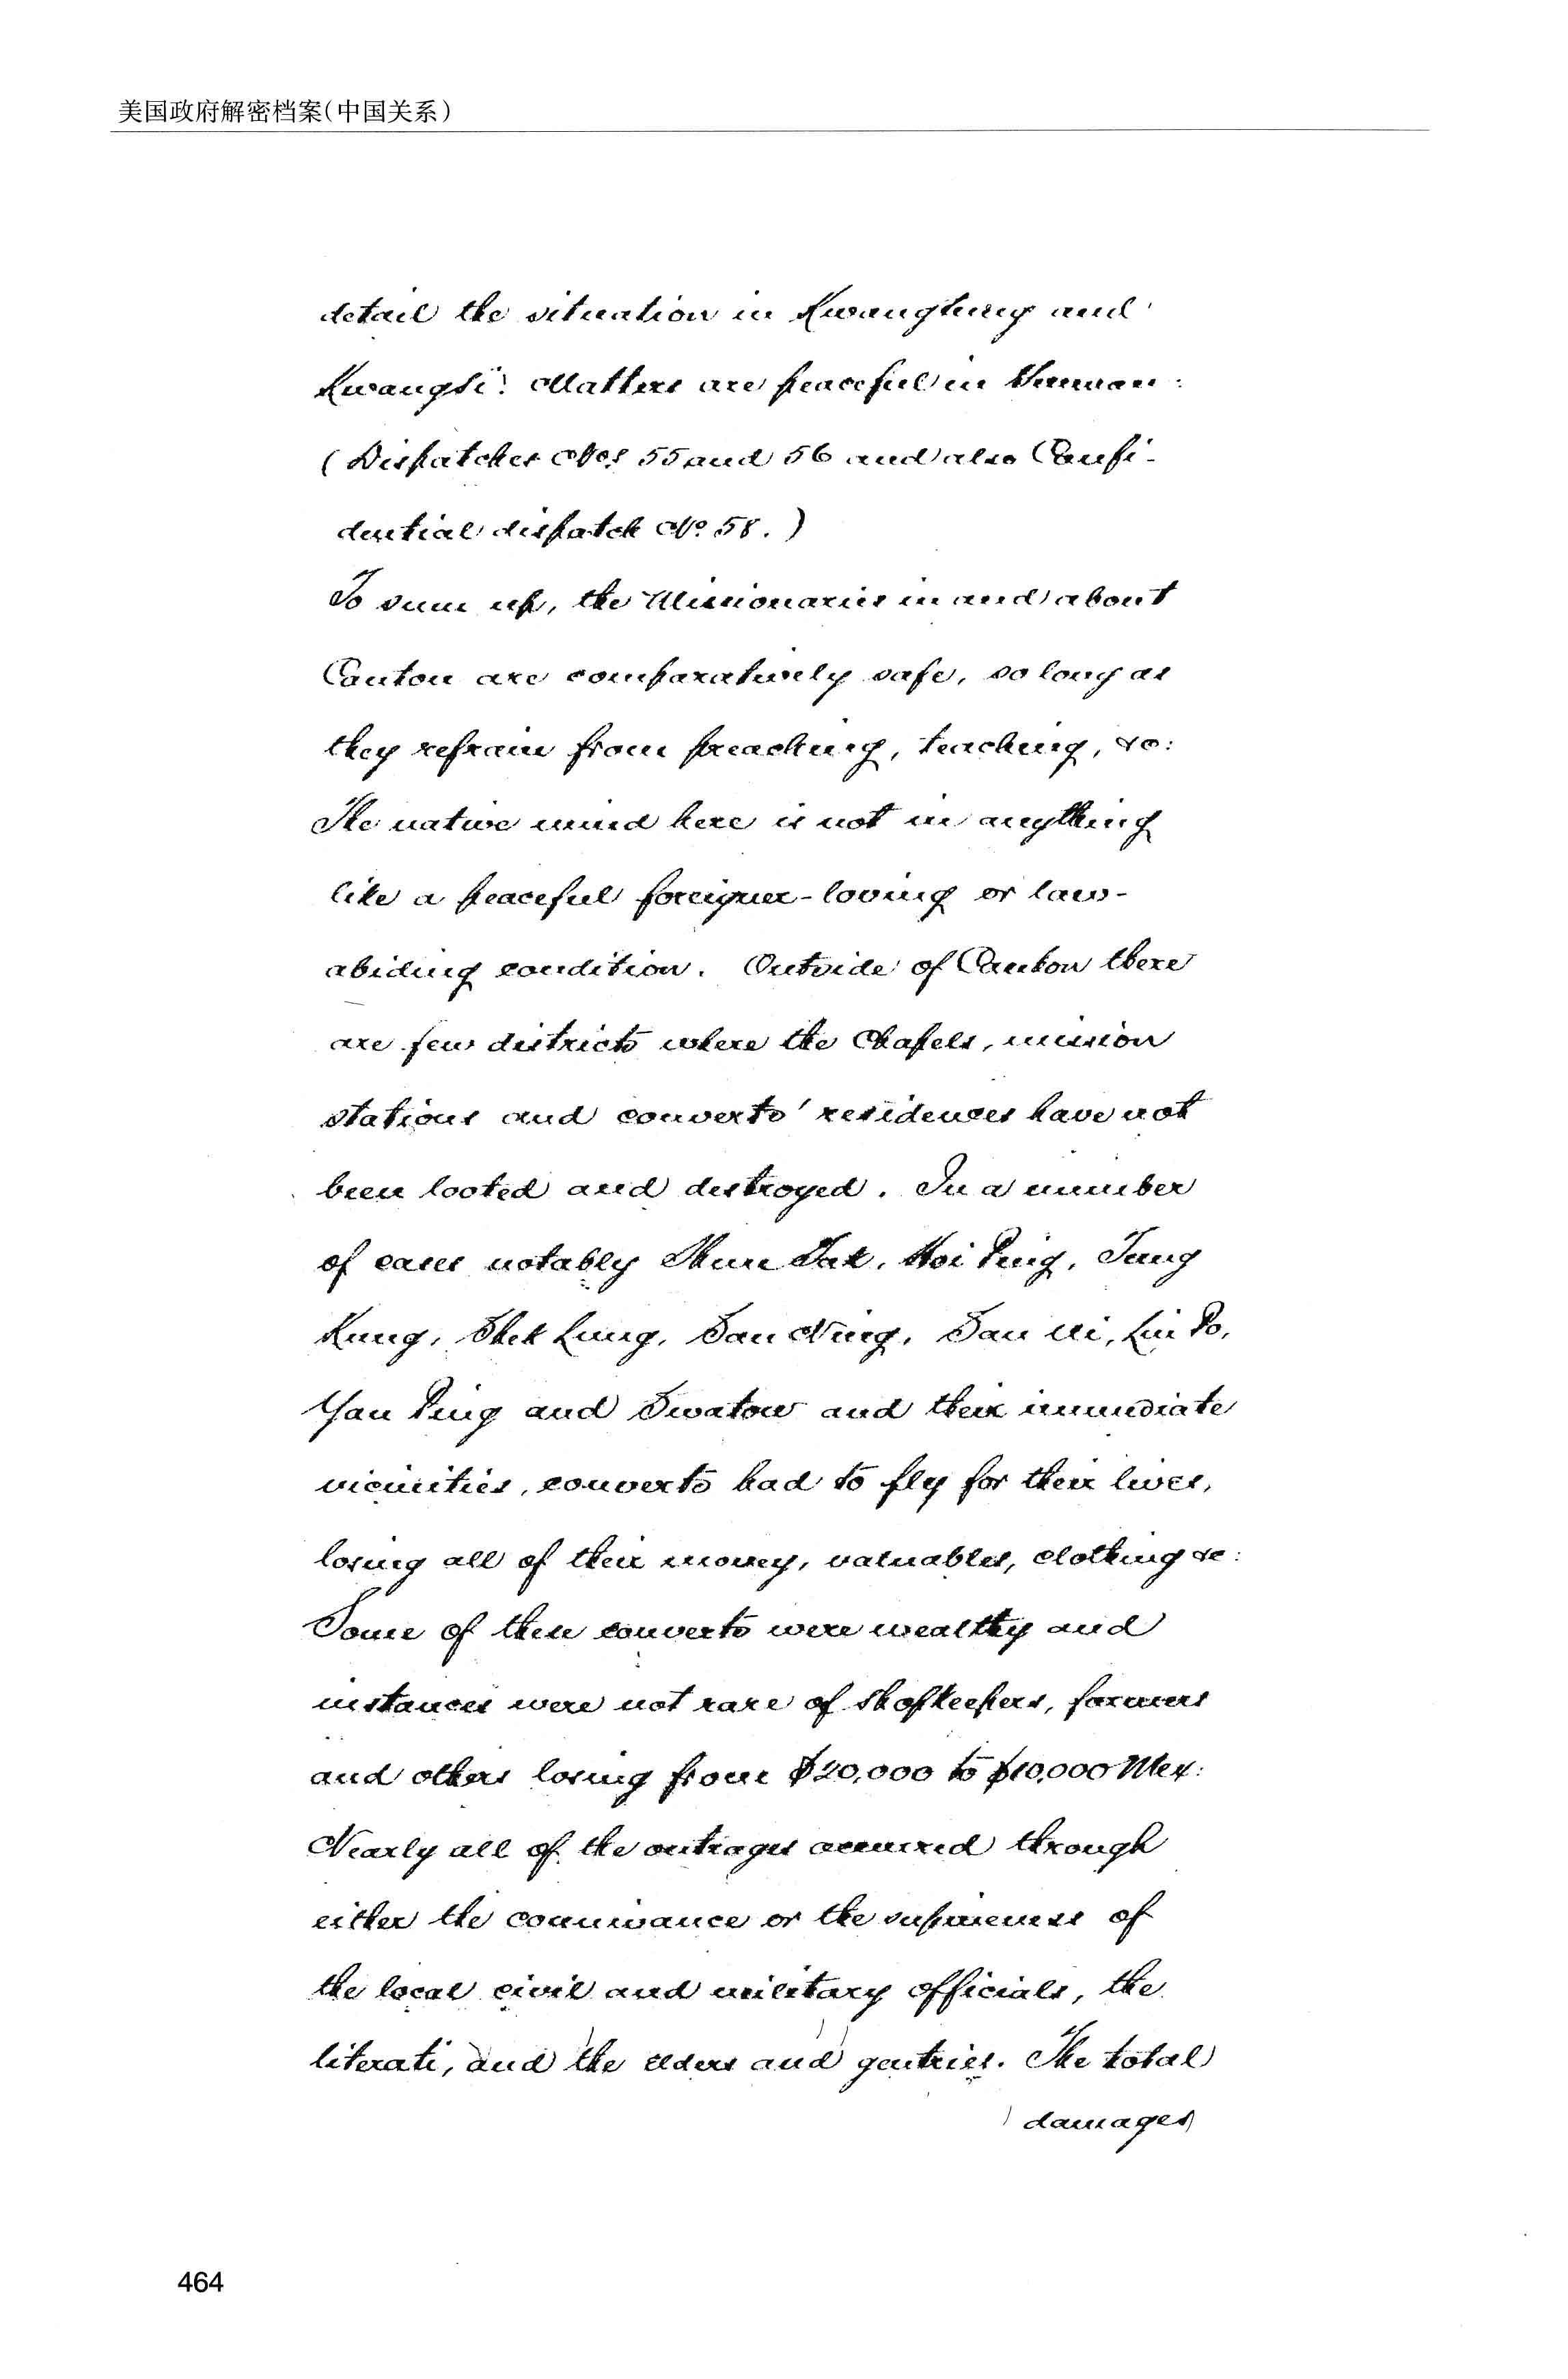 美国政府解密档案(中国关系)
detail the situation in Kwangtung and
Kwangsi. Matters are peaceful in Yunnan:
(Dispatches Nos 55 and 56 and also Confi-
dential dispatch No. 58.)
To sum up, the Missionaries in and about
Canton are comparatively safe, so long as
they refrain from preaching, teaching, &c:
The native mind here is not in anything
like a peaceful foreigner-loving or law-
abiding condition. Outside of Canton there
are few districts where the Chapels, mission
stations and converts' residences have not
been looted and destroyed. In a number
of cases notably Shun Tak, Hoi Ping, Tung
Kung, Shek Lung, San Ning, San Ui, Lin Po,
Yan Ping and Swatow and their immediate
vicinities, converts had to fly for their lives,
losing all of their money, valuables, clothing &c:
Some of these converts were wealthy and
instances were not rare of shopkeepers, farmers
and others losing from $20,000 to $10,000 Mex:
Nearly all of the outrages occurred through
either the connivance or the supineness of
the local civil and military officials, the
literati, and the elders and gentries. The total
damages
464